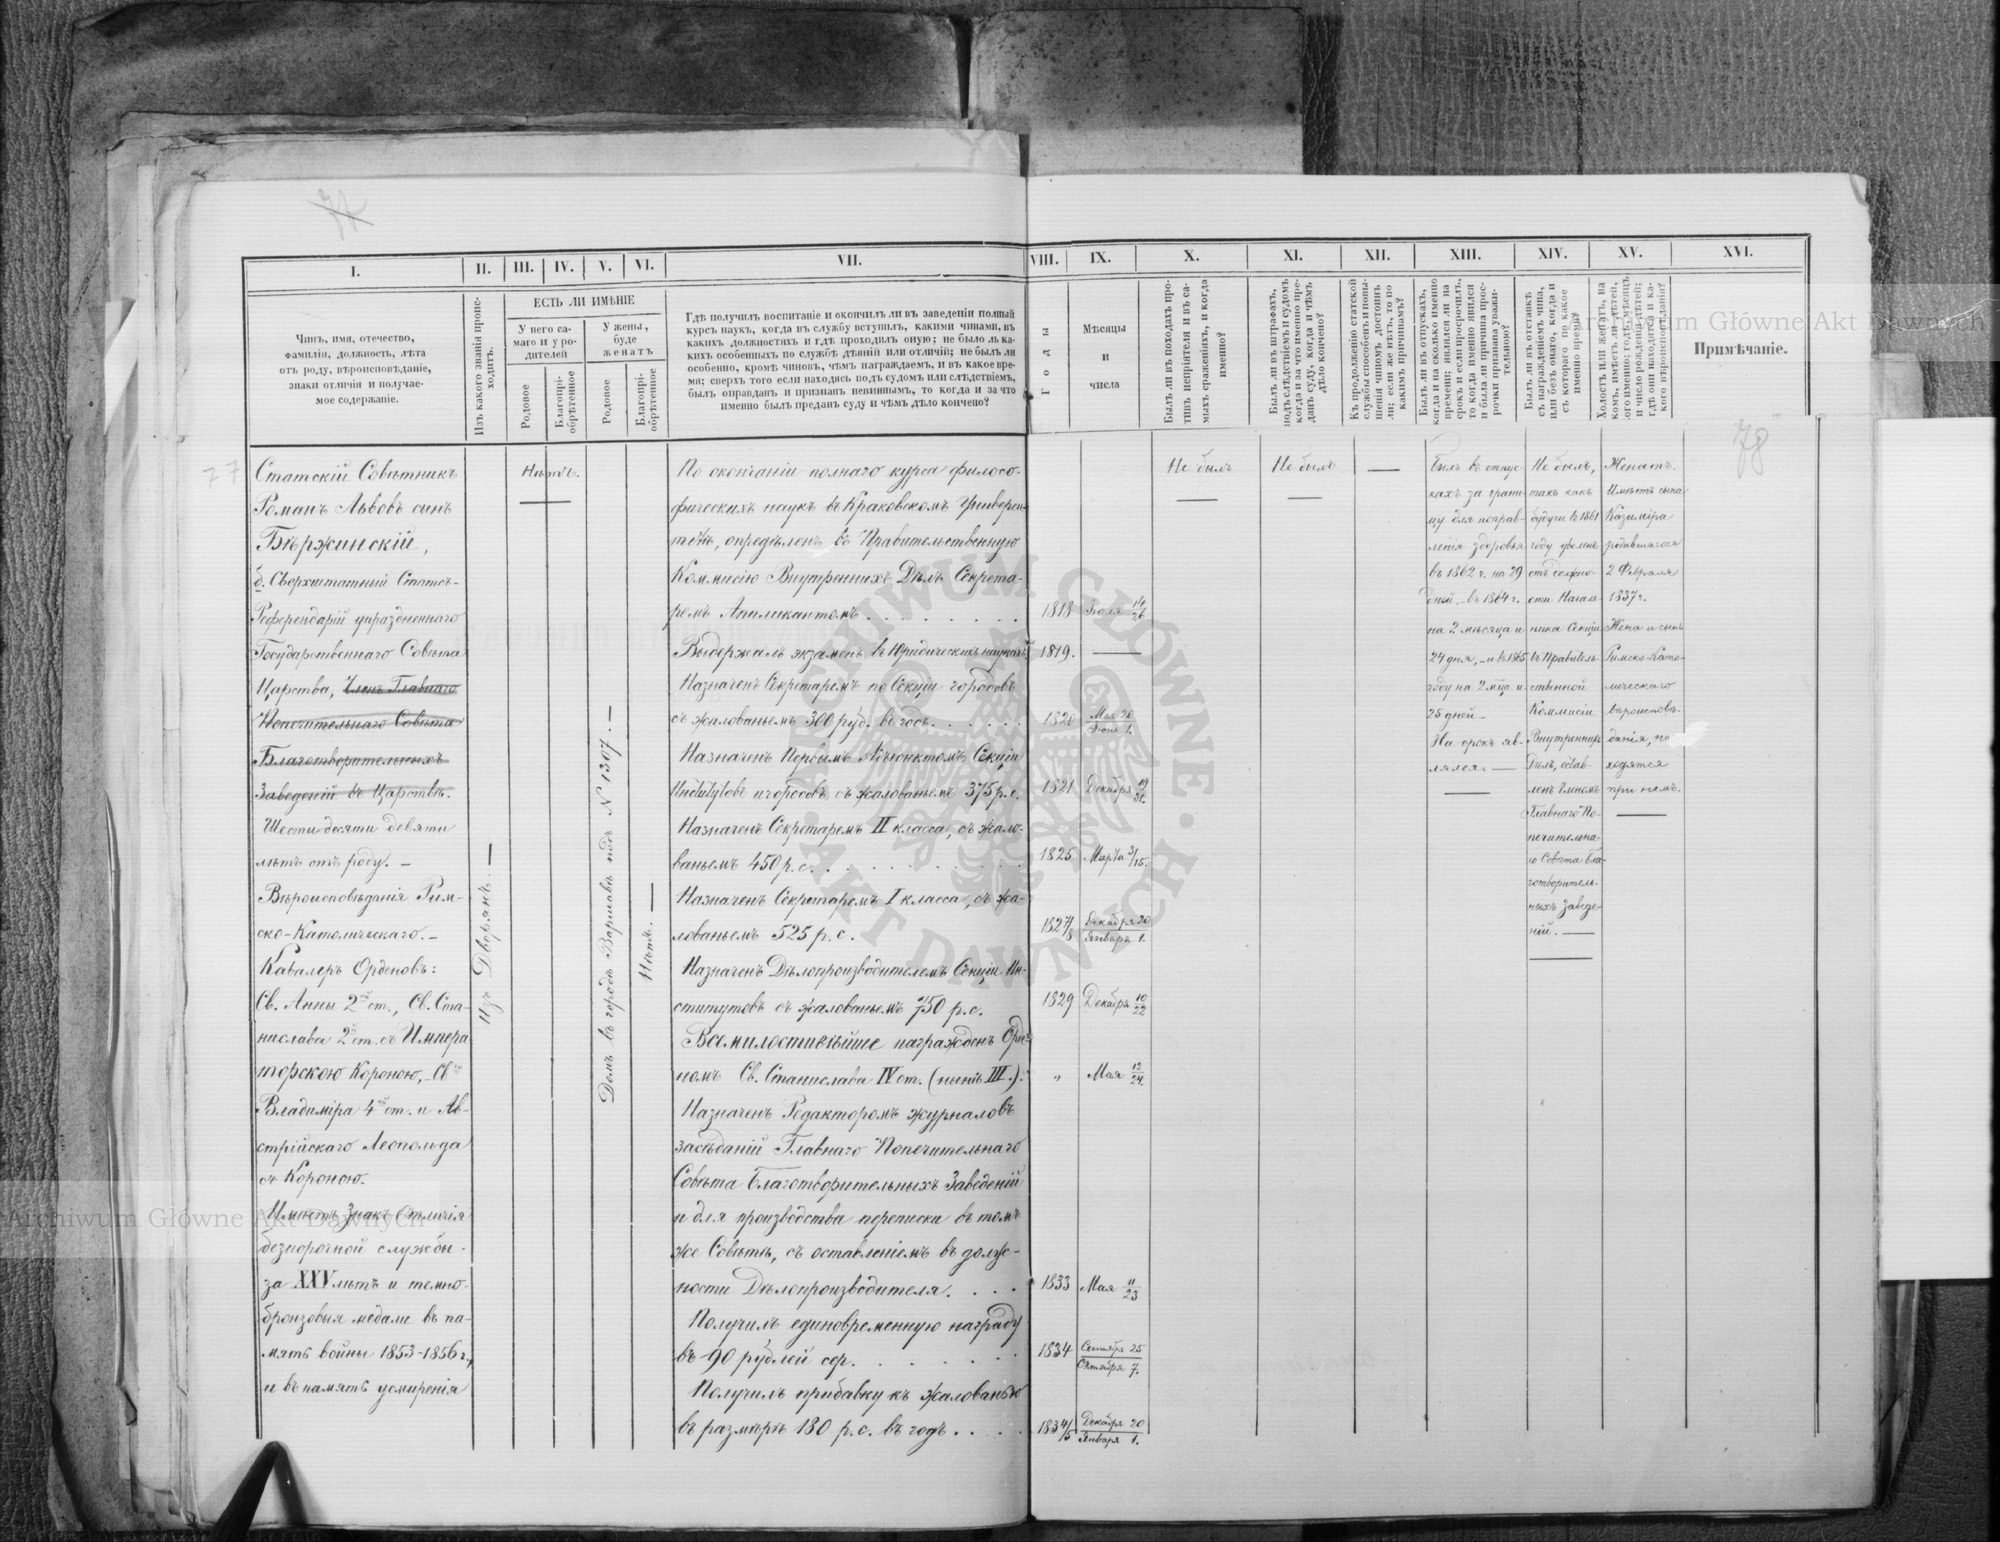 77
I.
II.
III.
IV.
V.
VI.
VII.
VIII.
IX.
X.
XI.
XII.
XIII.
XIV.
XV.
XVI.
Чинъ, имя, отечество,
фамилія, должность, лѣта
отъ роду, вѣроисповѣданіе,
знаки отличія и получае-
мое содержаніе.
Изъ какого званія проис-
ходитъ.
ЕСТЬ ЛИ ИМѢНІЕ
У него са-
маго и у ро-
дителей
У жены,
буде
женатъ
Родовое
Благопрі-
обрѣтенное
Родовое
Благопрі-
обрѣтенное
Гдѣ получилъ воспитаніе и окончилъ ли въ заведеніи полный
курсъ наукъ, когда въ службу вступилъ, какими чинами, въ
какихъ должностяхъ и гдѣ проходилъ оную; не было ль ка-
кихъ особенныхъ по службѣ дѣяній или отличій; не былъ ли
особенно, кромѣ чиновъ, чѣмъ награждаемъ, и въ какое вре-
мя; сверхъ того если находясь подъ судомъ или слѣдствіемъ,
былъ оправданъ и признанъ невиннымъ, то когда и за что
именно былъ преданъ суду и чѣмъ дѣло кончено?
Годы
Мѣсяцы
и
числа
Былъ ли въ походахъ про-
тивъ непріятеля и въ са-
мыхъ сраженіяхъ, и когда
именно?
Былъ ли въ штрафахъ,
подъ слѣдствіемъ и судомъ
когда и за что именно пре-
данъ суду, когда и чѣмъ
дѣло кончено?
Къ продолженію статской
службы способенъ и повы-
шенія чиномъ достоинъ
ли; если же нѣтъ, то по
какимъ причинамъ?
Былъ ли въ отпускахъ,
когда и на сколько именно
времени; являлся ли на
срокъ и если просрочилъ,
то когда именно явился
и была ли причина прос-
рочки признана уважи-
тельною?
Былъ ли въ отставкѣ
съ награжденіемъ чина,
или безъ онаго, когда и
съ котораго по какое
именно время?
Холостъ или женатъ, на
комъ, имѣетъ ли дѣтей,
кого именно; годъ, мѣсяцъ
и число рожденія дѣтей;
гдѣ они находятся и ка-
кого вѣроисповѣданія?
Примѣчаніе.
77
Статскій Совѣтникъ
Романъ Львовъ сынъ
Бѣржинскій,
б. Сверхштатный Статсъ-
Референдарій упраздненнаго
Государственнаго Совѣта
Царства, Членъ Главнаго
Попечительнаго Совѣта
Благотворительныхъ
Заведеній въ Царствѣ.
Шестидесяти девяти
лѣтъ отъ роду. –
Вѣроисповѣданія Рим-
ско-Католическаго. –
Кавалеръ Орденовъ:
Св. Анны 2ой ст., Св. Ста-
нислава 2й ст. съ Импера
торскою Короною, – Св.
Владиміра 4ой ст. и Ав-
стрійскаго Леопольда
съ Короною.
Имѣетъ Знакъ Отличія
безпорочной службы
за XXV лѣтъ и темно-
бронзовыя медали въ па-
мять войны 1853-1856 г.,
и въ память усмиренія
Изъ Дворянъ. –
Нѣтъ.
Домъ въ городѣ Варшавѣ подъ N 1307. –
Нѣтъ. –
По окончаніи полнаго курса филосо-
фическихъ наукъ въ Краковскомъ Универси-
тетѣ, опредѣленъ въ Правительственную
Коммисію Внутреннихъ Дѣлъ Секрета-
ремъ Апликантомъ . . . . . . . .
1818 Іюля 14/26
Выдержалъ экзаменъ въ Юридическихъ наукахъ
1819. —
Назначенъ Секретаремъ по Секціи городовъ
съ жалованьемъ 300 руб. въ годъ . . . . . .
1820 Мая 20/Іюня 1.
Назначенъ Первымъ Адъюнктомъ Секціи
Институтовъ и городовъ съ жалованьемъ 375 р. с.
1821 Декабря 19/31.
Назначенъ Секретаремъ II класса, съ жало-
ваньемъ 450 р. с. . . . . . . . .
1825 Марта 3/15.
Назначенъ Секретаремъ I класса, съ жа-
лованьемъ 525 р. с.
1827/8 Декабря 20/Января 1.
Назначенъ Дѣлопроизводителемъ Секціи Ин-
ститутовъ съ жалованьемъ 750 р. с.
1829 Декабря 10/22
Всемилостивѣйше награжденъ Орде-
номъ Св. Станислава IV ст. (нынѣ III.).
" Мая 12/24.
Назначенъ Редакторомъ журналовъ
засѣданій Главнаго Попечительнаго
Совѣта Благотворительныхъ Заведеній
и для производства переписки въ томъ
же Совѣтѣ, съ оставленіемъ въ долж-
ности Дѣлопроизводителя. . . .
1833 Мая 11/23
Получилъ единовременную награду
въ 90 рублей сер. . . . . . .
1834 Сентября 25/Октября 7.
Получилъ прибавку къ жалованью
въ размѣрѣ 180 р. с. въ годъ . . . .
1834/5 Декабря 20/Января 1.
Не былъ
Не былъ
Былъ въ отпус-
кахъ за грани-
цу для поправ-
ленія здоровья
въ 1862 г. на 29
дней, – въ 1864 г.
на 2 мѣсяца и
24 дня, – и въ 1865
году на 2 мѣца и
25 дней –
На срокъ яв-
лялся. —
Не былъ,
такъ какъ
будучи въ 1861
году уволенъ
отъ должно-
сти Началь-
ника Секціи
въ Правитель-
ственной
Коммисіи
Внутреннихъ
Дѣлъ, остав-
ленъ Членомъ
Главнаго По-
печительна-
го Совѣта Бла-
готворитель-
ныхъ Заведе-
ній. —
Женатъ.
Имѣетъ сына
Казиміра
родившагося
2 Февраля
1837 г.
Жена и сынъ
Римско-Като-
лическаго
вѣроисповѣ-
данія, на-
ходятся
при немъ.
78
ARCHIWUM GŁÓWNE AKT DAWNYCH
Archiwum Główne Akt Dawnych
Archiwum Główne Akt Dawnych